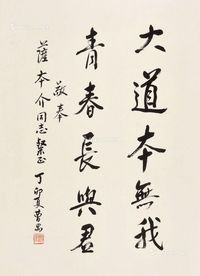 大道本無我
青春長與君
敬奉
薩本介同志 粲正 丁卯夏 曹禺